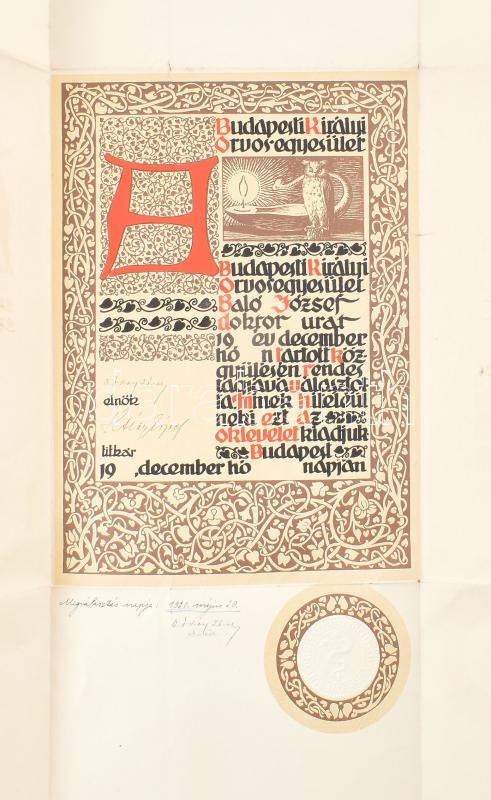 Budapesti Királyi
Orvosegyesület
A
Budapesti Királyi
Orvosegyesület
Baló József
doktor urat
19 év december
hó n tartott köz-
gyűlésén rendes
tagjává választot-
ta. Minek hiteléül
neki ezt az
oklevelet kiadjuk
Budapest
elnök
titkár
19 , december hó napján
Megválasztás napja: 1921. május 20.